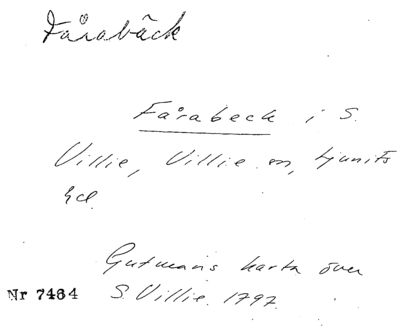 Fårabäck
Fårabeck i S.
Villie, Villie sn, Ljunits
hd.
Gutmans karta över
Nr 7484 S. Villie. 1797.